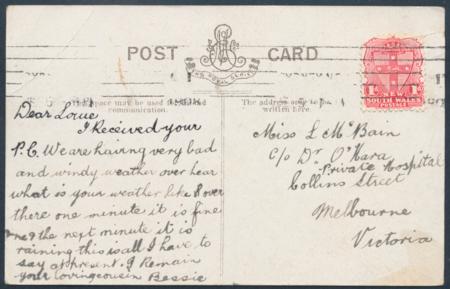 POST CARD
This space may be used for
communication.
The address only to be
written here.
1D
SOUTH WALES
POSTAGE
Dear Louie
I Received your
P.C. We are hairng very bad
and windy weather over hear
what is your weather like over
there one minute it is fine
and the next minute it is
raining this is all I have to
say at present. I Remain
your loving cousin Bessie
Miss L McBain
C/o Dr O'Hara
Private Hospital
Collins Street
Melbourne
Victoria